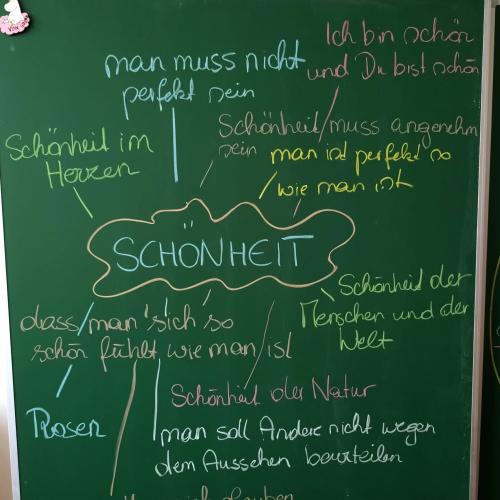 Ich bin schön
und Du bist schön
man muss nicht
perfekt sein
Schönheit muss angenehm
sein
man ist perfekt so
wie man ist
Schönheit im
Herzen
SCHÖNHEIT
Schönheit der
Menschen und der
Welt
dass man sich so
schön fühlt wie man ist
Schönheit der Natur
Rosen
man soll Andere nicht wegen
dem Aussehen beurteilen